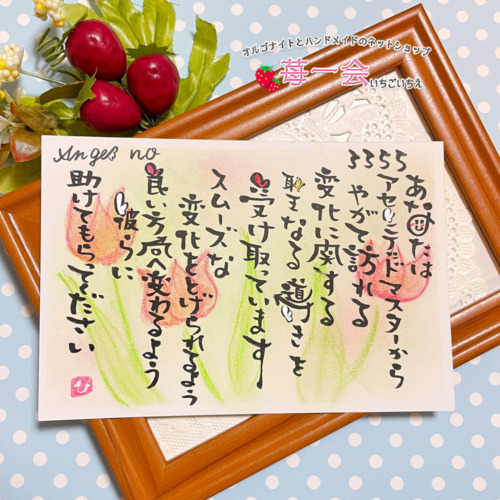 オルゴナイトとハンドメイドのネットショップ
苺一会いちごいちえ
Angel no
3355
あなたは
アセンデッドマスターから
やがて訪れる
変化に関する
聖なる導きを
受け取っています
スムーズな
変化をとげられるよう
良い方向へ変わるよう
彼らに
助けてもらってください